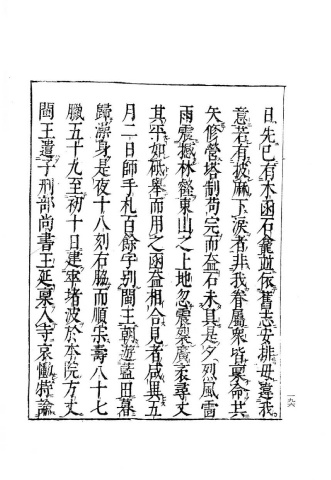 日先已有木函石龕並依舊志安排毋違我
意若有披麻下淚者非我眷屬衆皆稟命其
矢修營塔制苟完而盖石未具是夕烈風雷
雨震撼林壑東山之上地忽震裂廣袤尋丈
其平如砥舉而用之函盖相合見者咸異五
月二日師手札百餘字別閩王朝遊藍田暮
歸澡身是夜十八刻右脇而順宗壽八十七
臘五十九至初十日建窣堵波於本院方丈
閩王遣子刑部尚書王延稟入寺哀慟特諭
一九六